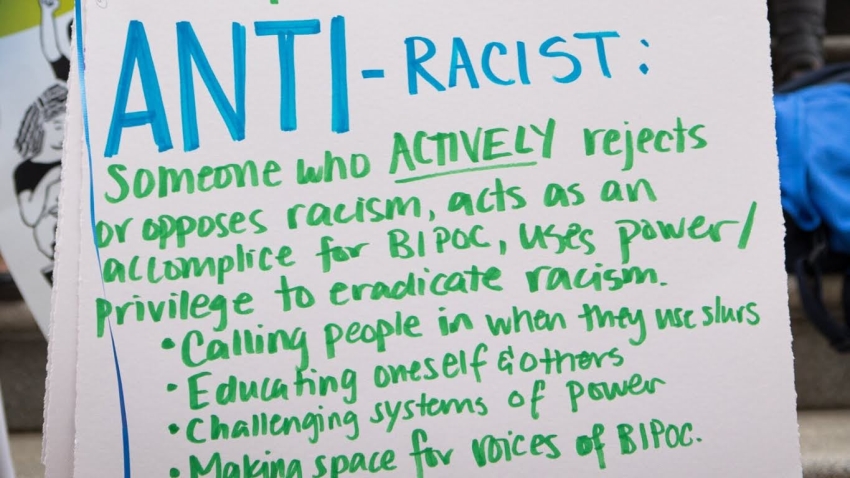 ANTI-RACIST:
Someone who ACTIVELY rejects
or opposes racism, acts as an
accomplice for BIPOC, uses power/
privilege to eradicate racism.
• Calling people in when they use slurs
• Educating oneself & others
• Challenging systems of power
• Making space for voices of BIPOC.